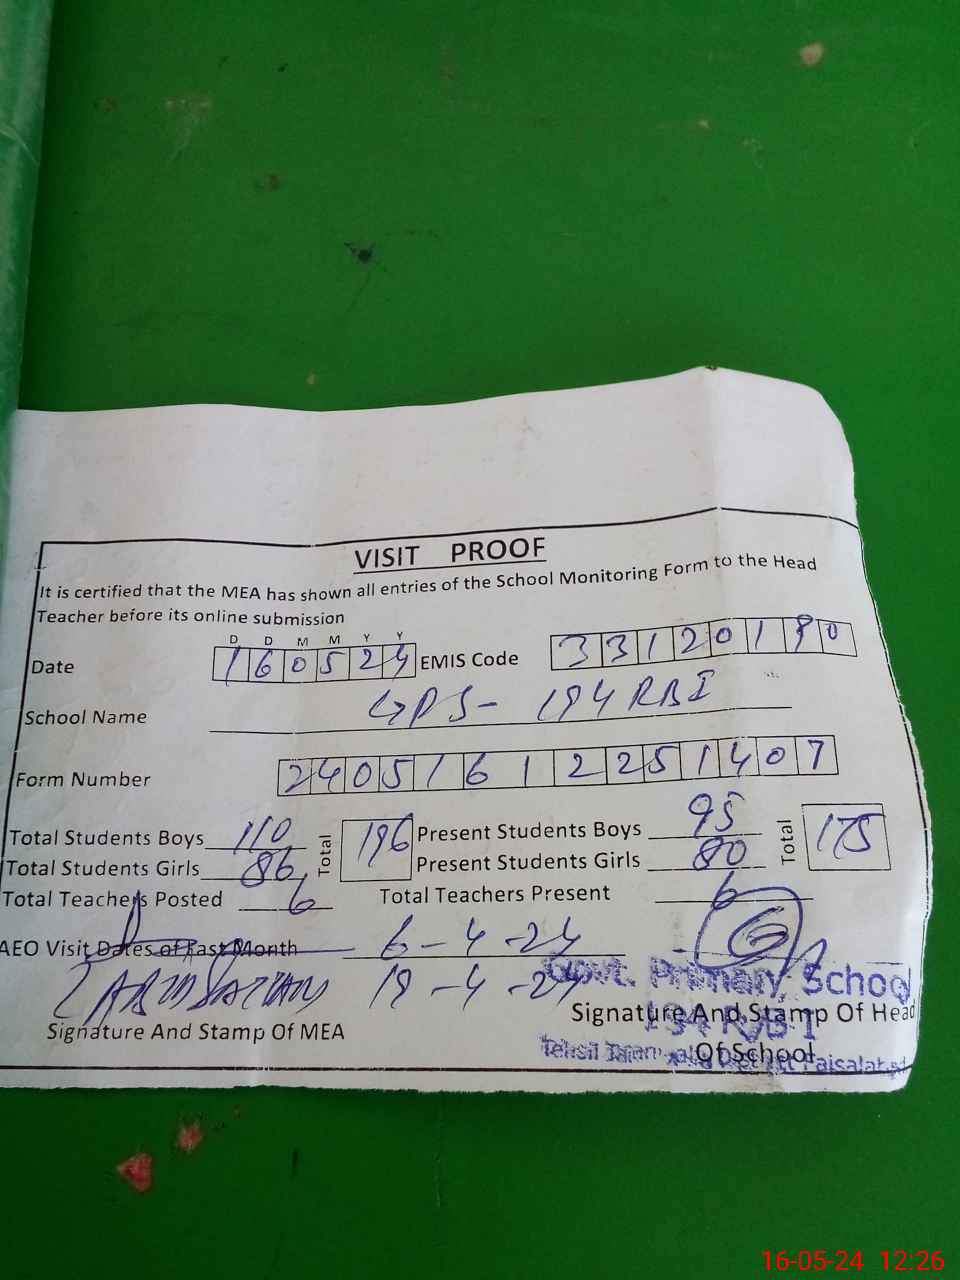 VISIT PROOF
It is certified that the MEA has shown all entries of the School Monitoring Form to the Head
Teacher before its online submission
D D M M Y Y
Date 160524 EMIS Code 33120190
School Name GPS- 194 RB I
Form Number 24051612251407
Total Students Boys 110 Total 196 Present Students Boys 95 Total 175
Total Students Girls 86 Present Students Girls 80
Total Teachers Posted 6 Total Teachers Present 6
AEO Visit Dates of Last Month 6-4-24
19-4-24
Govt. Primary School
194 R/B-1
Signature And Stamp Of MEA Signature And Stamp Of Head
Of School
Tehsil District Faisalabad
16-05-24 12:26